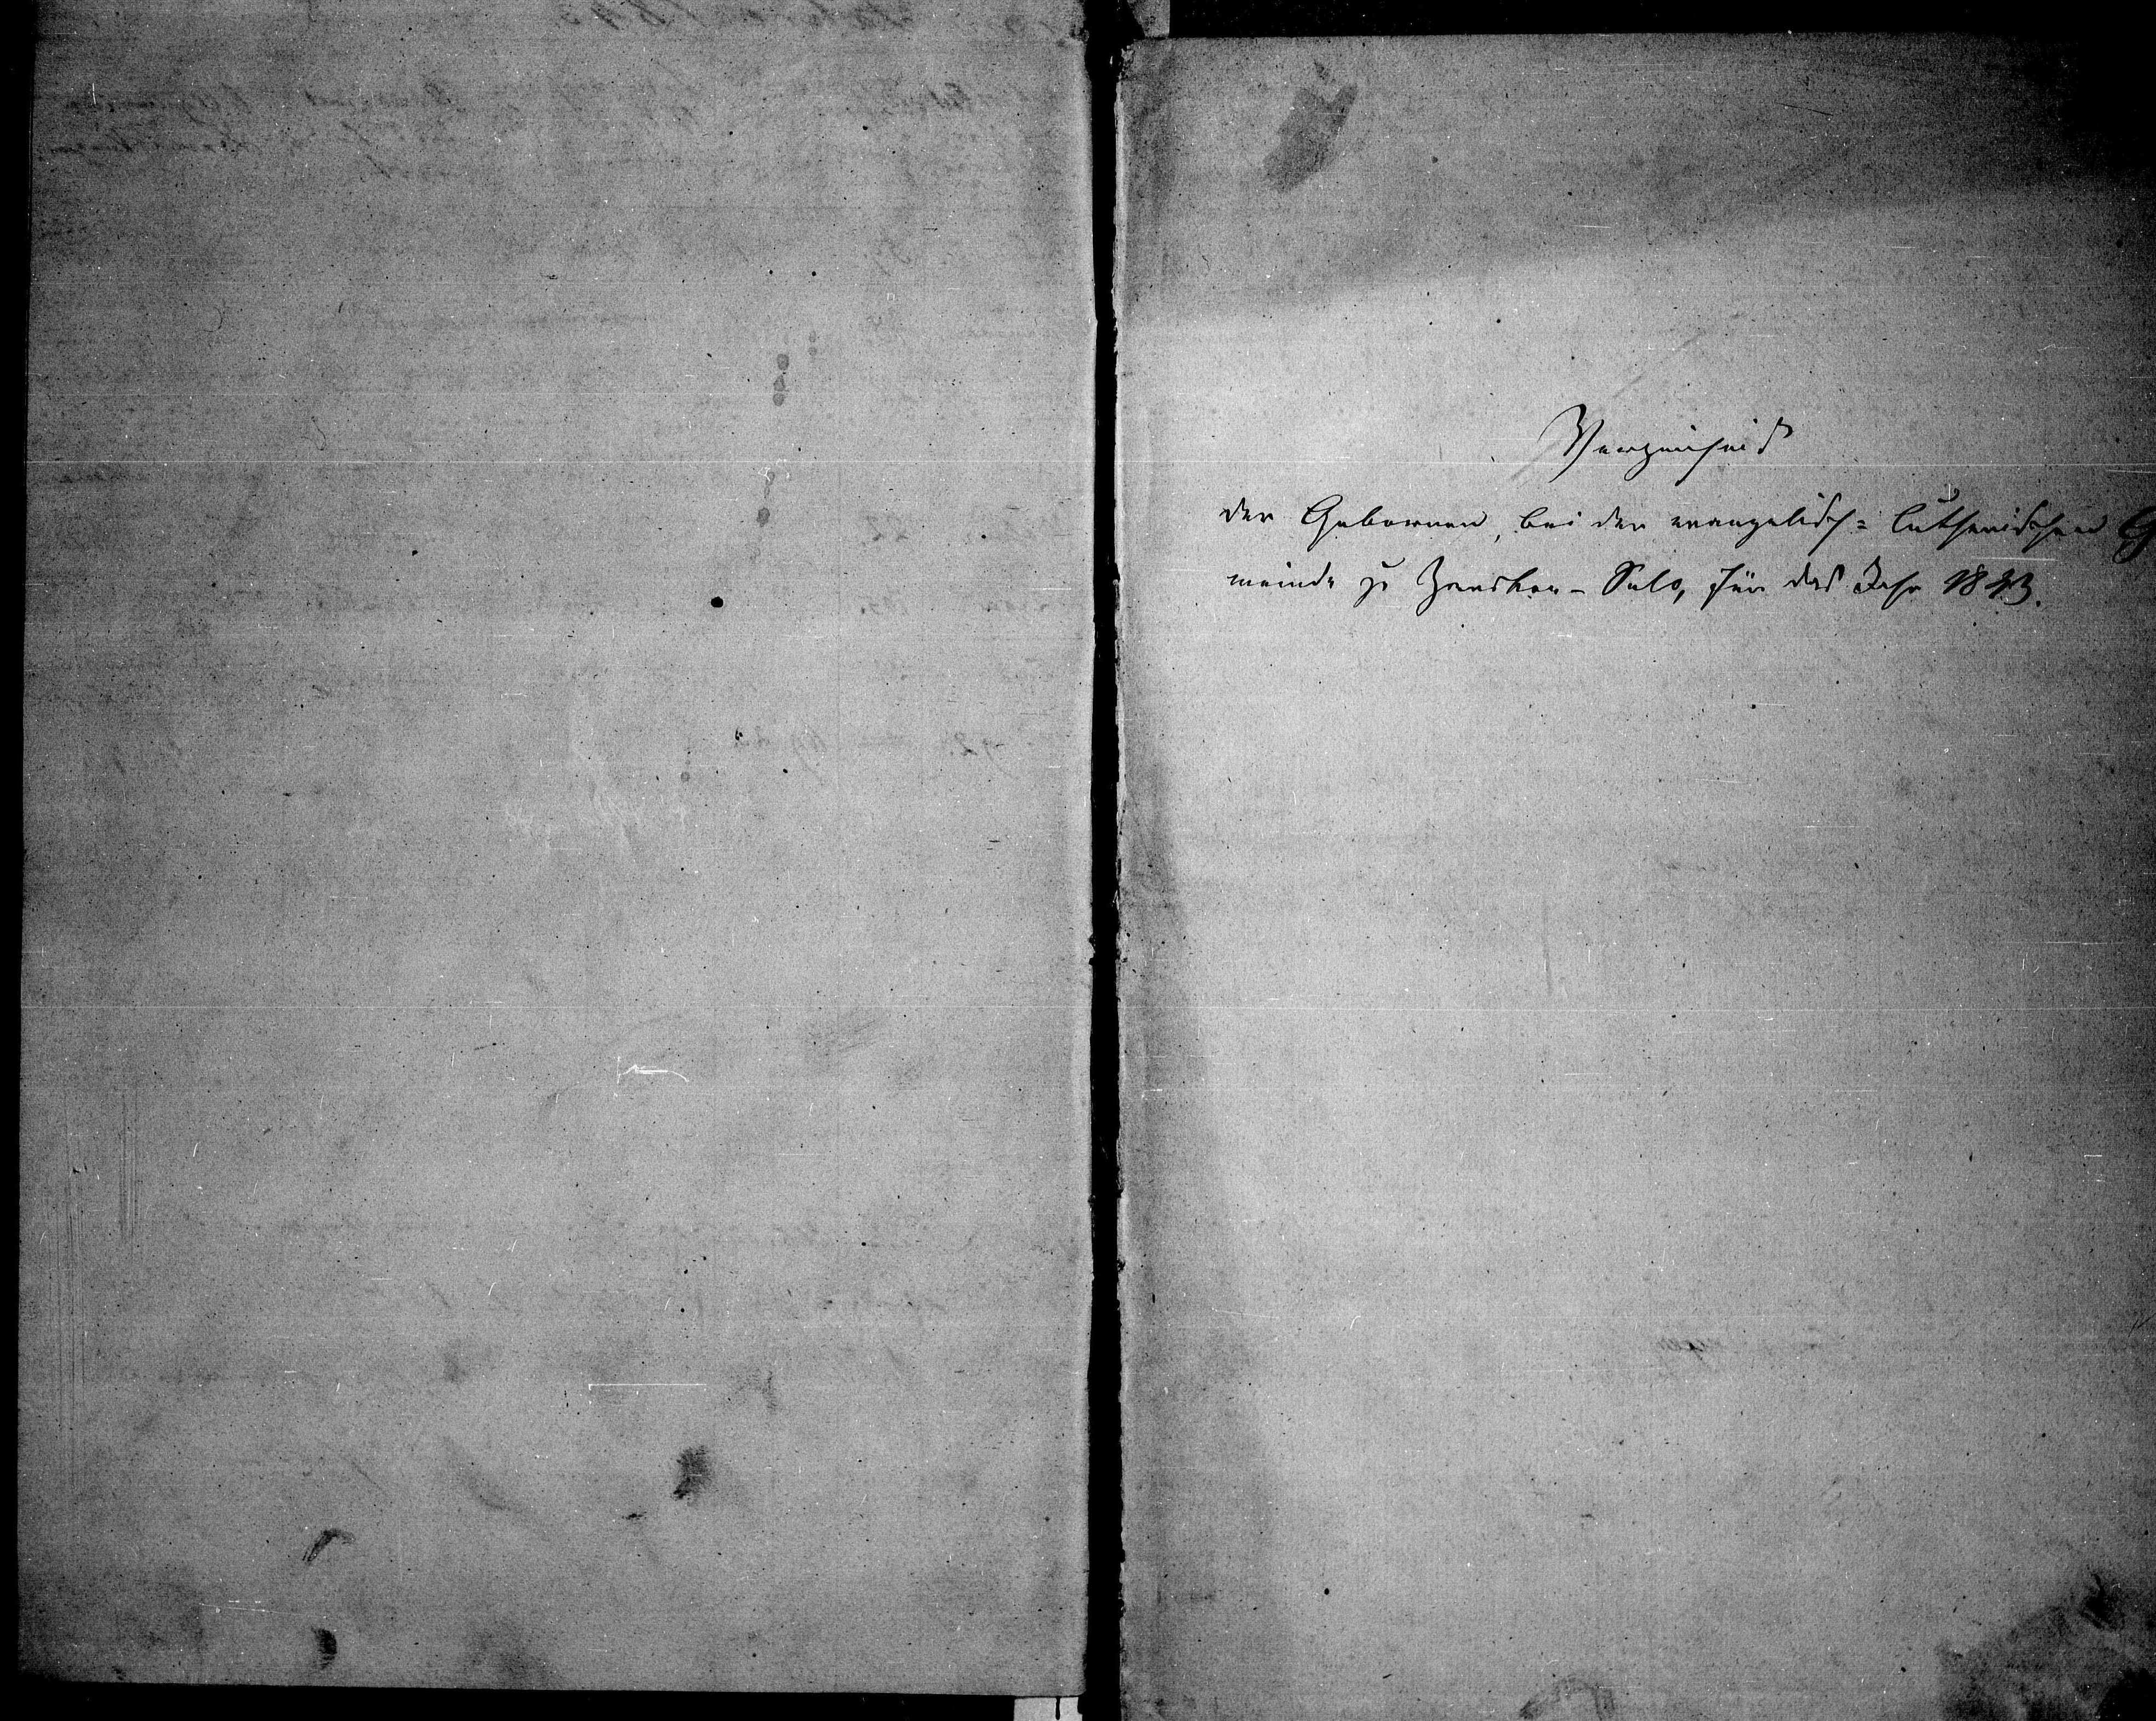 Verzeichniß
der Gebornen, bei der evangelisch= lutherischen G
meinde zu Zarskoe-Selo, für das Jahr 1843.